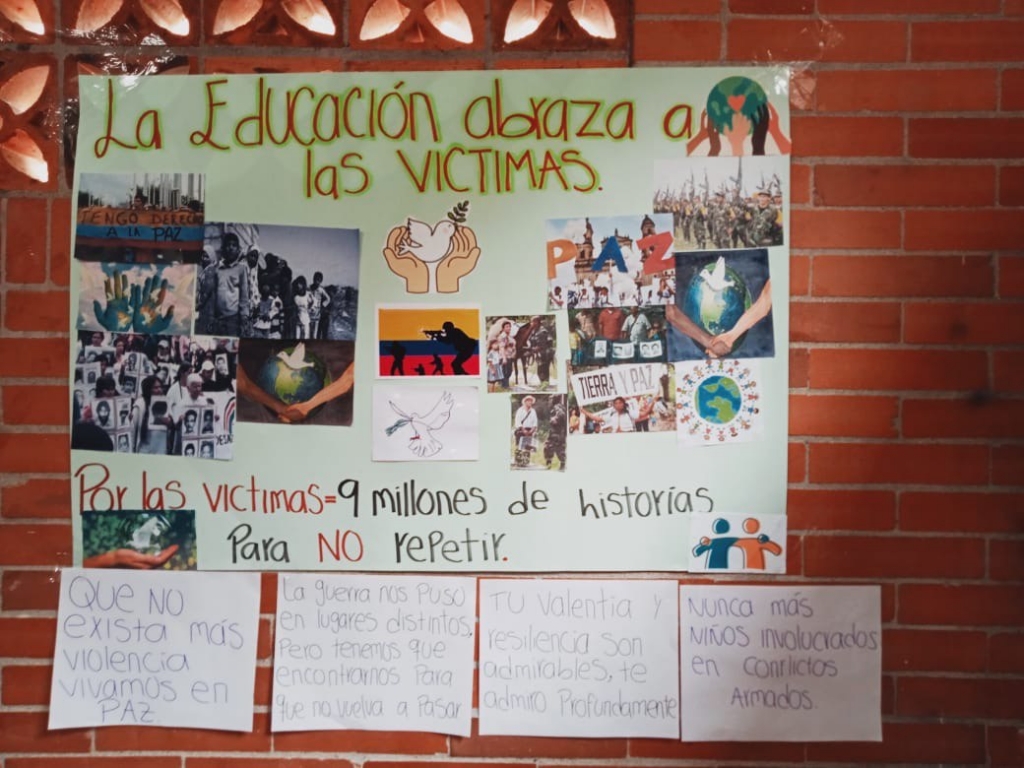 La Educación abraza a
las VICTIMAS.
TENGO DERECHO
A LA PAZ
PAZ
TIERRA Y PAZ
Por las victimas=9 millones de historías
Para NO repetir.
QUE NO
exista más
violencia
vivamos en
PAZ.
La guerra nos puso
en lugares distintos,
Pero tenemos que
encontrarnos Para
que no vuelva a Pasar
TU valentia y
resilencia son
admirables, te
admiro Profundamente
NUNCA más
NIÑOS INVOLUCRADOS
en conflictos
ARMADOS.